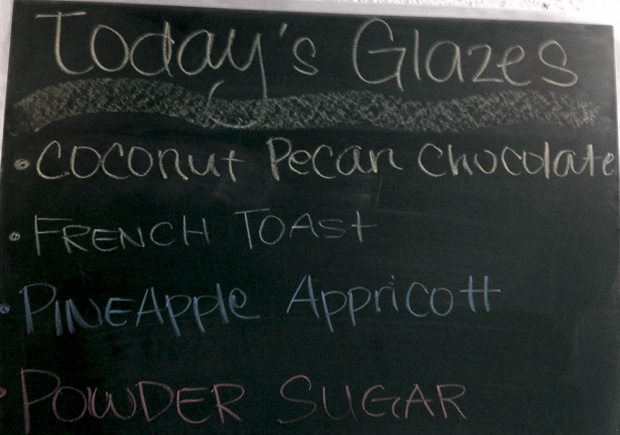 Today's Glazes
• COCONUT Pecan Chocolate
• FRENCH TOAST
• PINEApple Appricott
• POWDER SUGAR